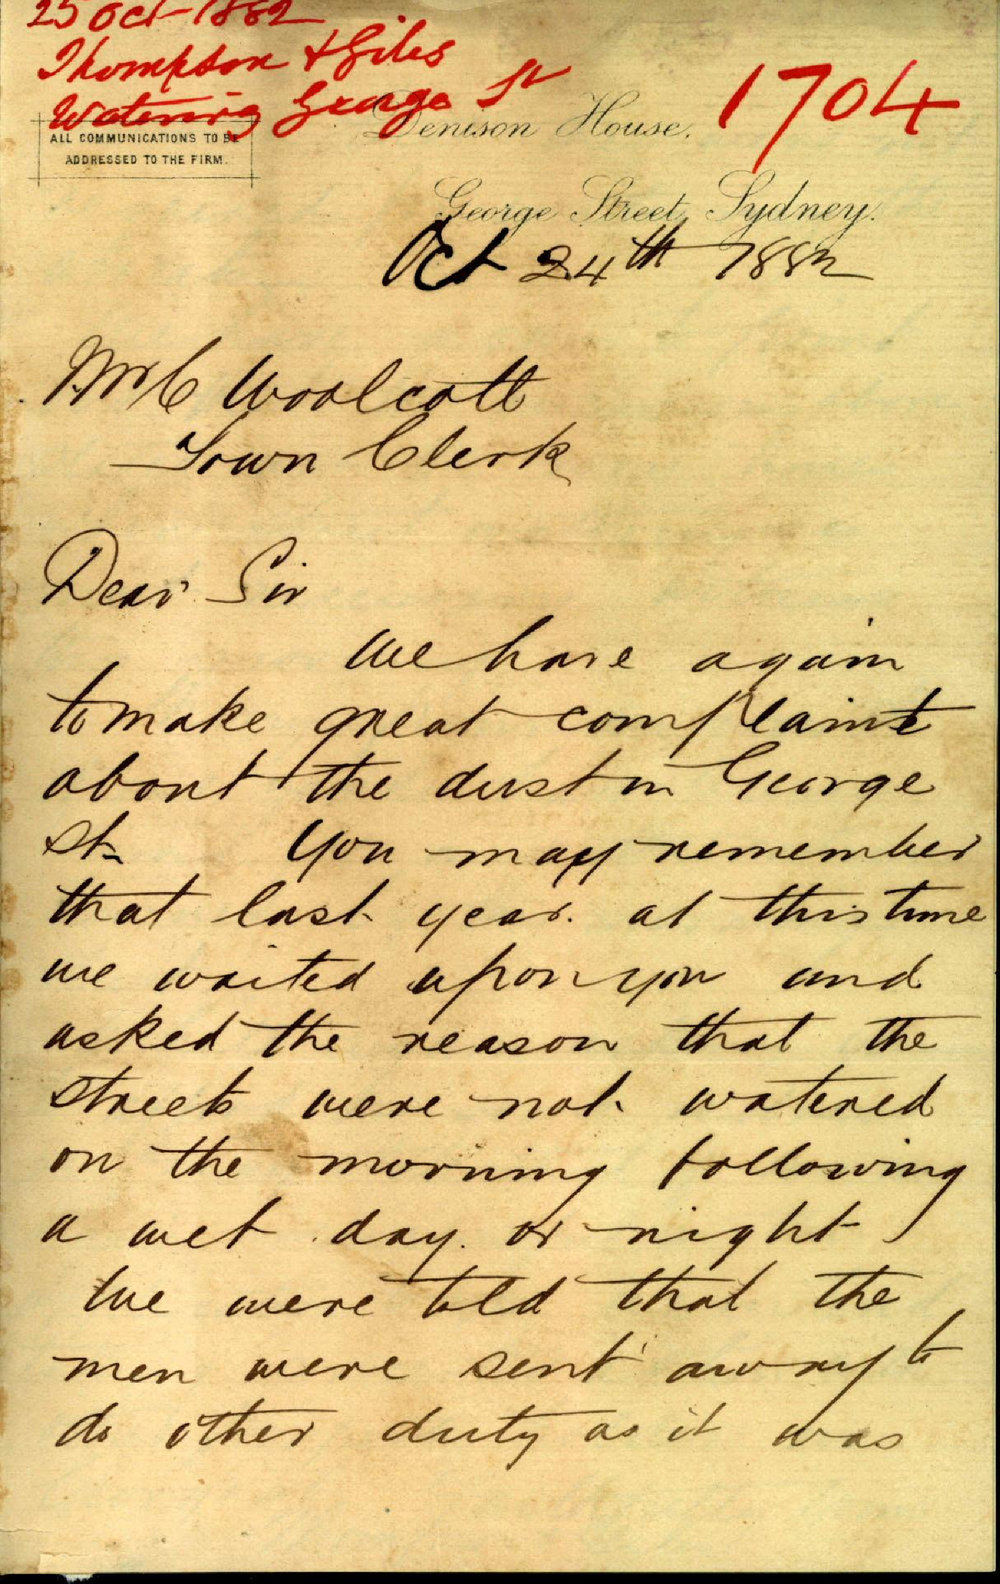 25 Oct 1882
Thompson & Giles
Watering George St
1704
ALL COMMUNICATIONS TO BE
ADDRESSED TO THE FIRM.
Denison House,
George Street, Sydney.
Oct 24th 1882
Mr C Woolcott
Town Clerk
Dear Sir
We have again
to make great complaint
about the dust in George
St. You may remember
that last year at this time
we waited upon you and
asked the reason that the
streets were not watered
on the morning following
a wet day or night
We were told that the
men were sent away to
do other duty as it was